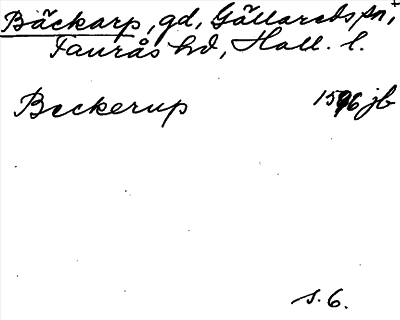 Bäckarp, gd, Gällareds sn,
Faurås hd, Hall. l.
Beckerup 1596 jb
s. 6.